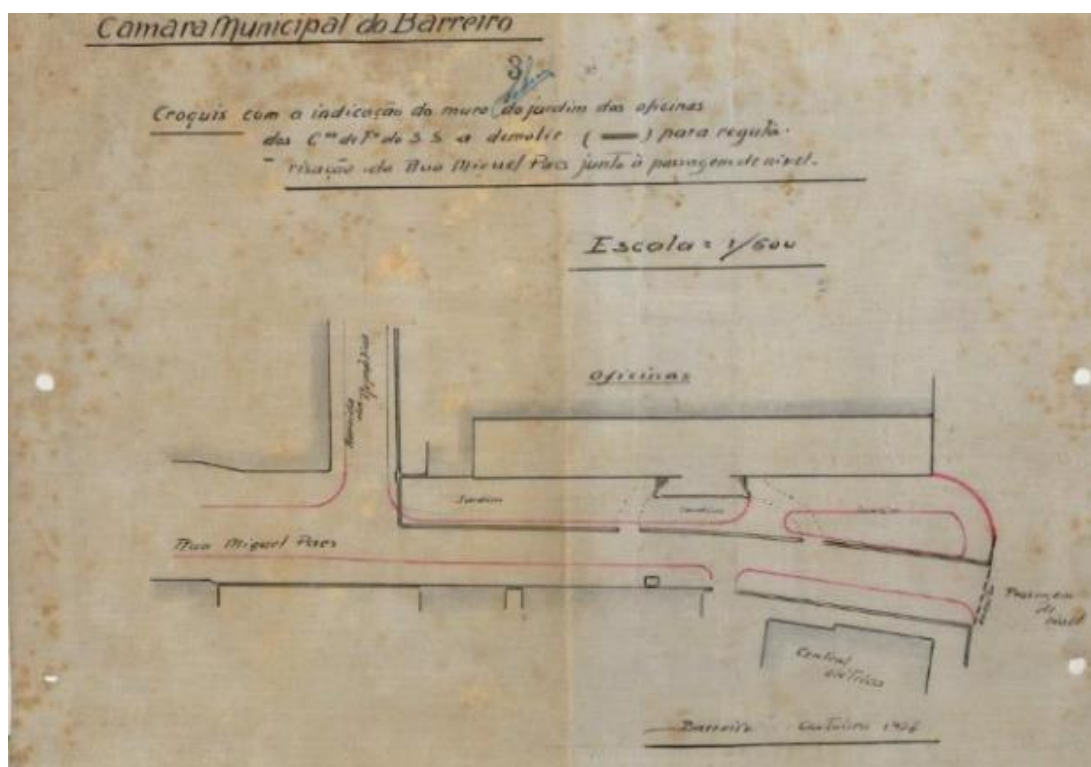 Camara Municipal do Barreiro
3
Croquis com a indicação do muro do jardim das oficinas
dos C.os de F.o do S S a demolir ( ) para regula-
risação da Rua Miguel Paes junto à passagem de nivel.
Escala = 1/500
Avenida da Republica
Oficinas
Jardim
Jardim
Jardim
Rua Miguel Paes
Passagem
de
nivel
Central
eletrica
Barreiro Outubro 1926